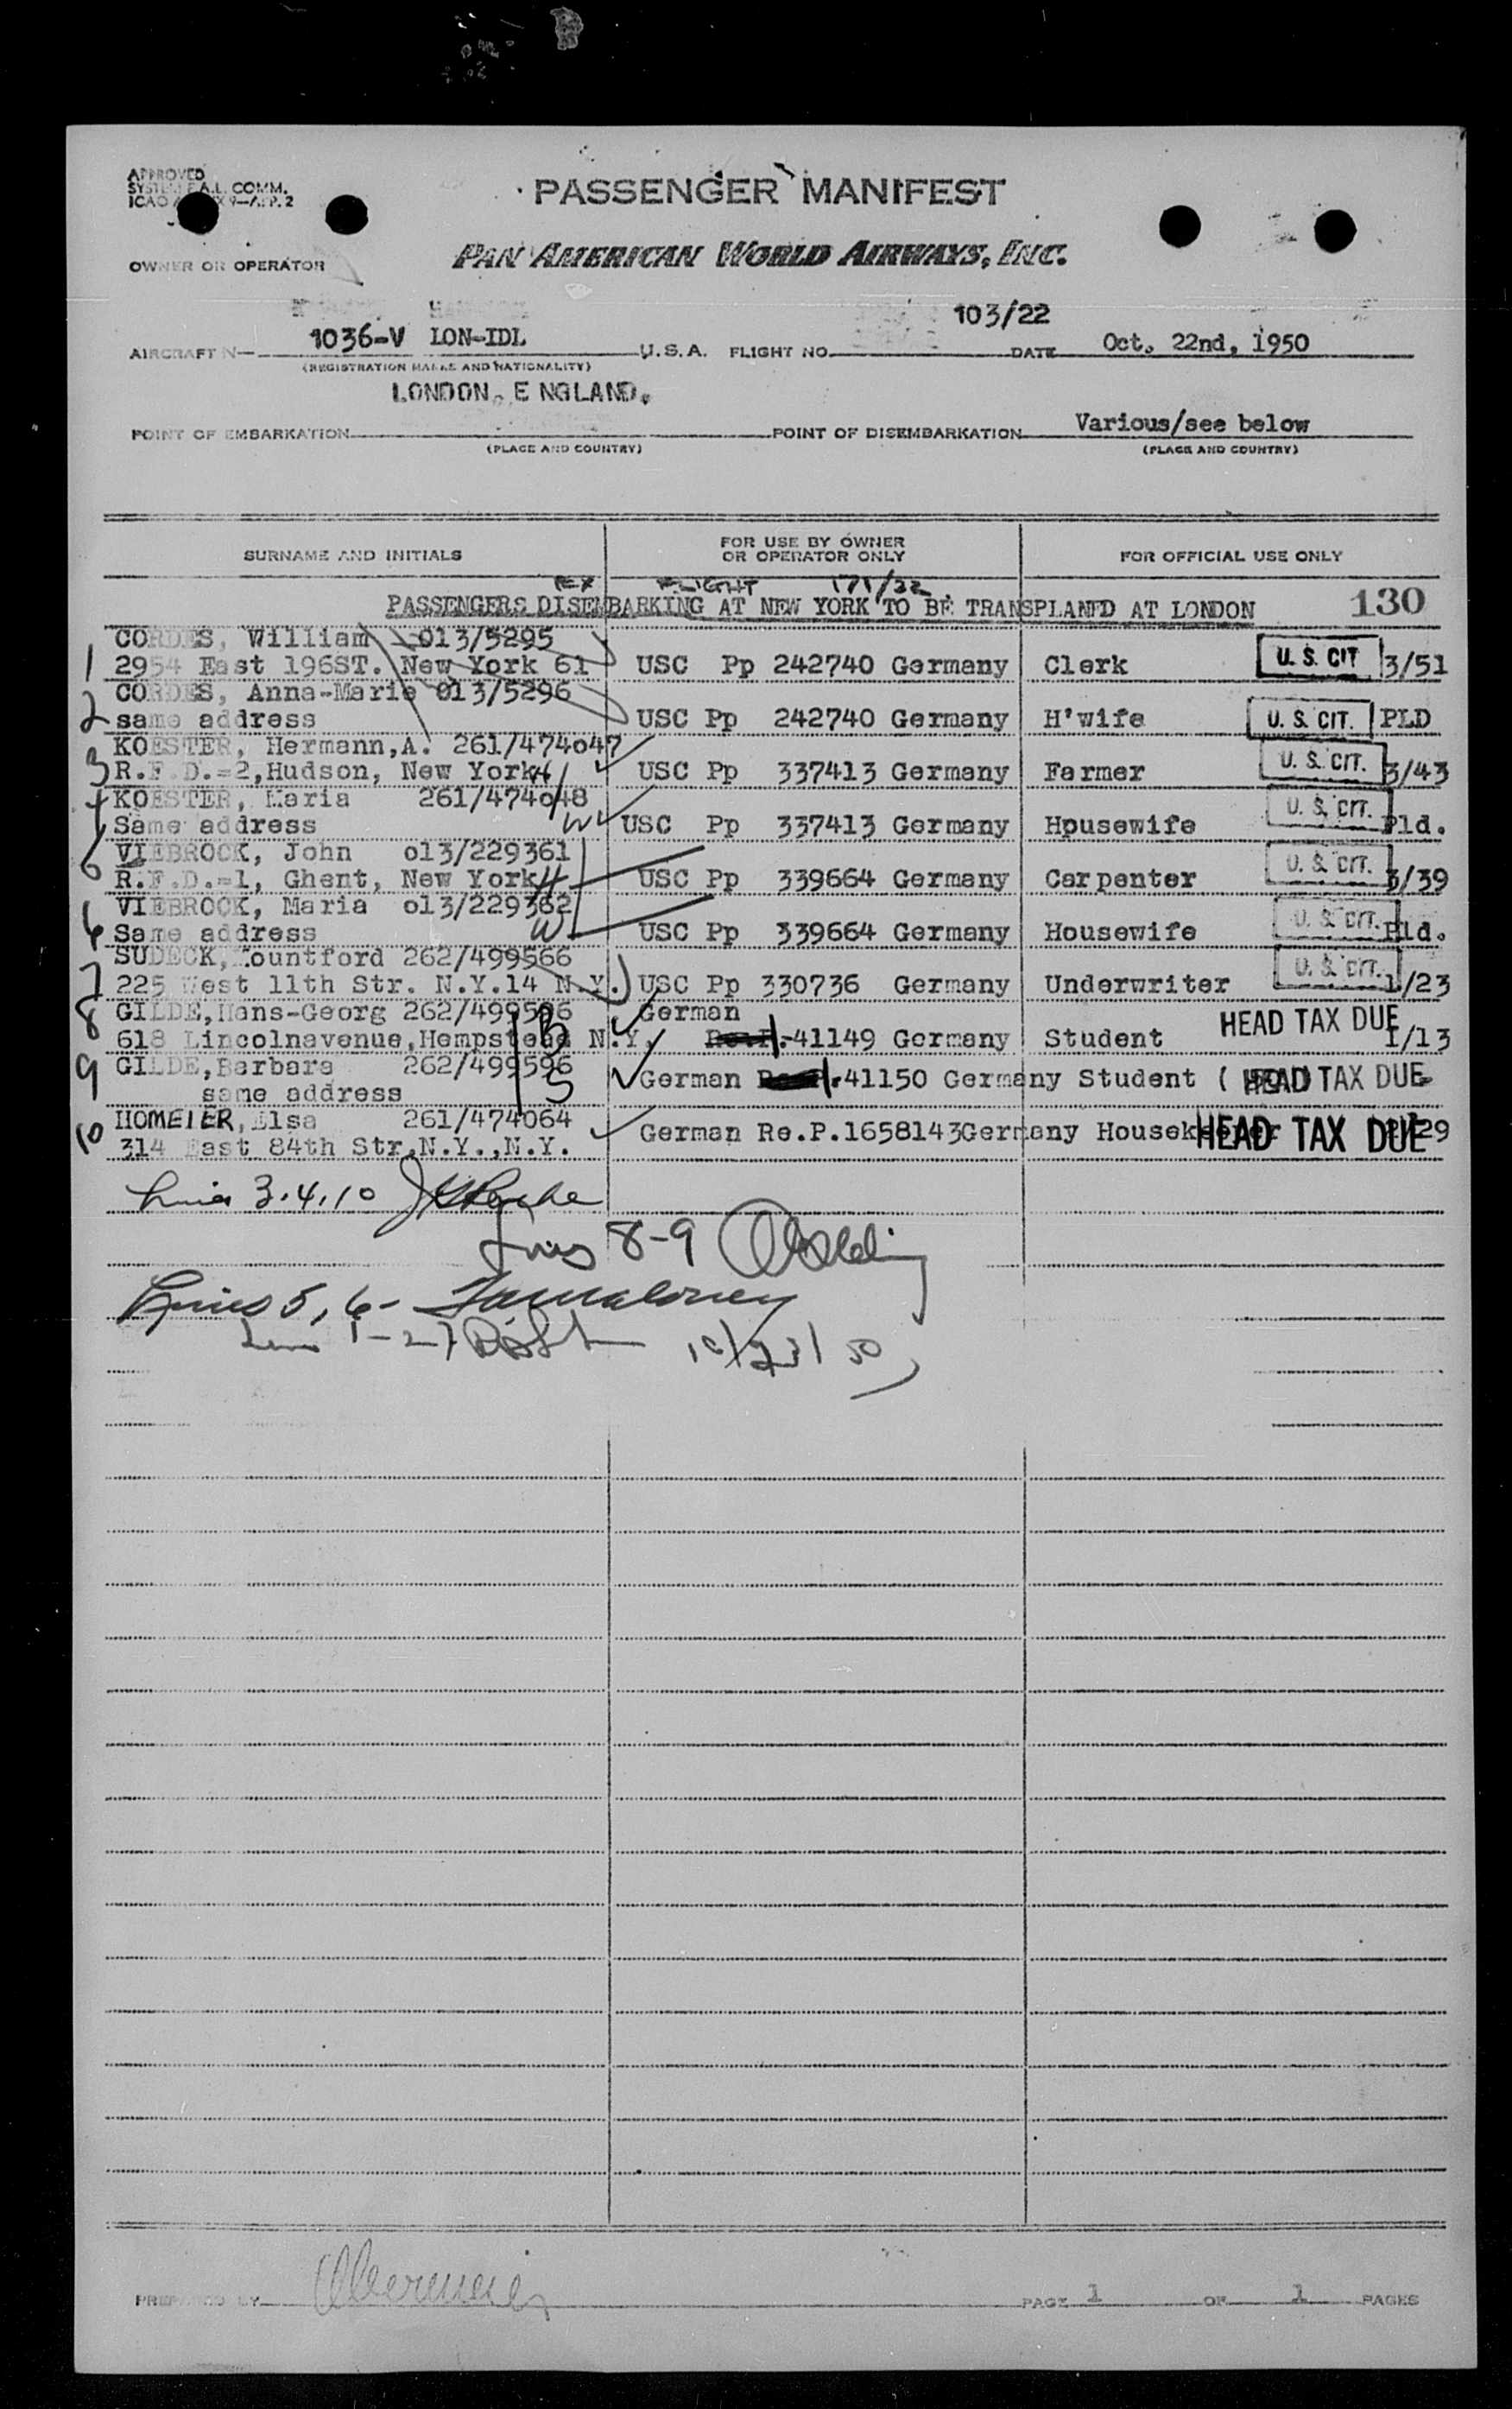 APPROVED
SYSTEM F.A.L. COMM.
ICAO ANNEX 9—APP. 2
PASSENGER MANIFEST
OWNER OR OPERATOR
PAN AMERICAN WORLD AIRWAYS, INC.
103/22
AIRCRAFT N— 1036-V LON-IDL U.S.A. FLIGHT NO. DATE Oct. 22nd, 1950
(REGISTRATION MARKS AND NATIONALITY)
LONDON, E NGLAND.
POINT OF EMBARKATION POINT OF DISEMBARKATION Various/see below
(PLACE AND COUNTRY) (PLACE AND COUNTRY)
SURNAME AND INITIALS FOR USE BY OWNER OR OPERATOR ONLY FOR OFFICIAL USE ONLY
EX FLIGHT 171/22
PASSENGERS DISEMBARKING AT NEW YORK TO BE TRANSPLANED AT LONDON 130
CORDES, William 013/5295
1 2954 East 196ST. New York 61 USC Pp 242740 Germany Clerk U. S. CIT 3/51
CORDES, Anna-Marie 013/5296
2 same address USC Pp 242740 Germany H'wife U. S. CIT. PLD
KOESTER, Hermann,A. 261/474047
3 R.F.D.=2,Hudson, New York H USC Pp 337413 Germany Farmer U. S. CIT. 3/43
KOESTER, Maria 261/474048
4 Same address W USC Pp 337413 Germany Hpusewife U. S. CIT. Pld.
VIEBROCK, John o13/229361
5 R.F.D.=1, Ghent, New York H USC Pp 339664 Germany Carpenter U. S. CIT. 3/39
VIEBROCK, Maria o13/229362
6 Same address W USC Pp 339664 Germany Housewife U. S. CIT. Pld.
SUDECK, Mountford 262/499566
7 225 West 11th Str. N.Y.14 N.Y. USC Pp 330736 Germany Underwriter U. S. CIT. 1/23
8 GILDE,Hans-Georg 262/499596 German
618 Lincolnavenue,Hempstead N.Y. B 41149 Germany Student HEAD TAX DUE 1/13
9 GILDE,Barbara 262/499596 German 41150 Germany Student ( HEAD TAX DUE
same address S
HOMEIER,Elsa 261/474064
10 314 East 84th Str,N.Y.,N.Y. German Re.P.1658143Germany Housekeeper HEAD TAX DUE /29
Lines 3.4.10
Lines 8-9
Lines 5, 6-
Lines 1-2-7 10/23/50
PREPARED BY PAGE 1 OF 1 PAGES